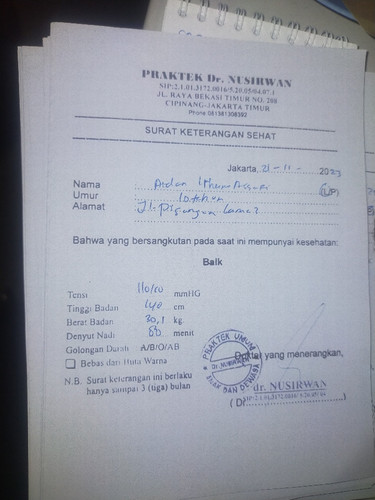 PRAKTEK Dr. NUSIRWAN
SIP:2.1.01.3172.0016/5.20.05/04.07.1
JL. RAYA BEKASI TIMUR NO. 208
CIPINANG-JAKARTA TIMUR
Phone 081381308392
SURAT KETERANGAN SEHAT
Jakarta, 21-11-2023
Nama (L/P)
Umur 10 tahun
Alamat Jl. Pisangan Lama 2
Bahwa yang bersangkutan pada saat ini mempunyai kesehatan:
Baik
Tensi 110/80 mmHG
Tinggi Badan 140 cm
Berat Badan 30,1 kg.
Denyut Nadi 80 menit
Golongan Darah : A/B/O/AB
Bebas dari Buta Warna
N.B. Surat keterangan ini berlaku
hanya sampai 3 (tiga) bulan
PRAKTEK UMUM
Dr. NUSIRWAN
ANAK DAN DEWASA
Dokter yang menerangkan,
dr. NUSIRWAN